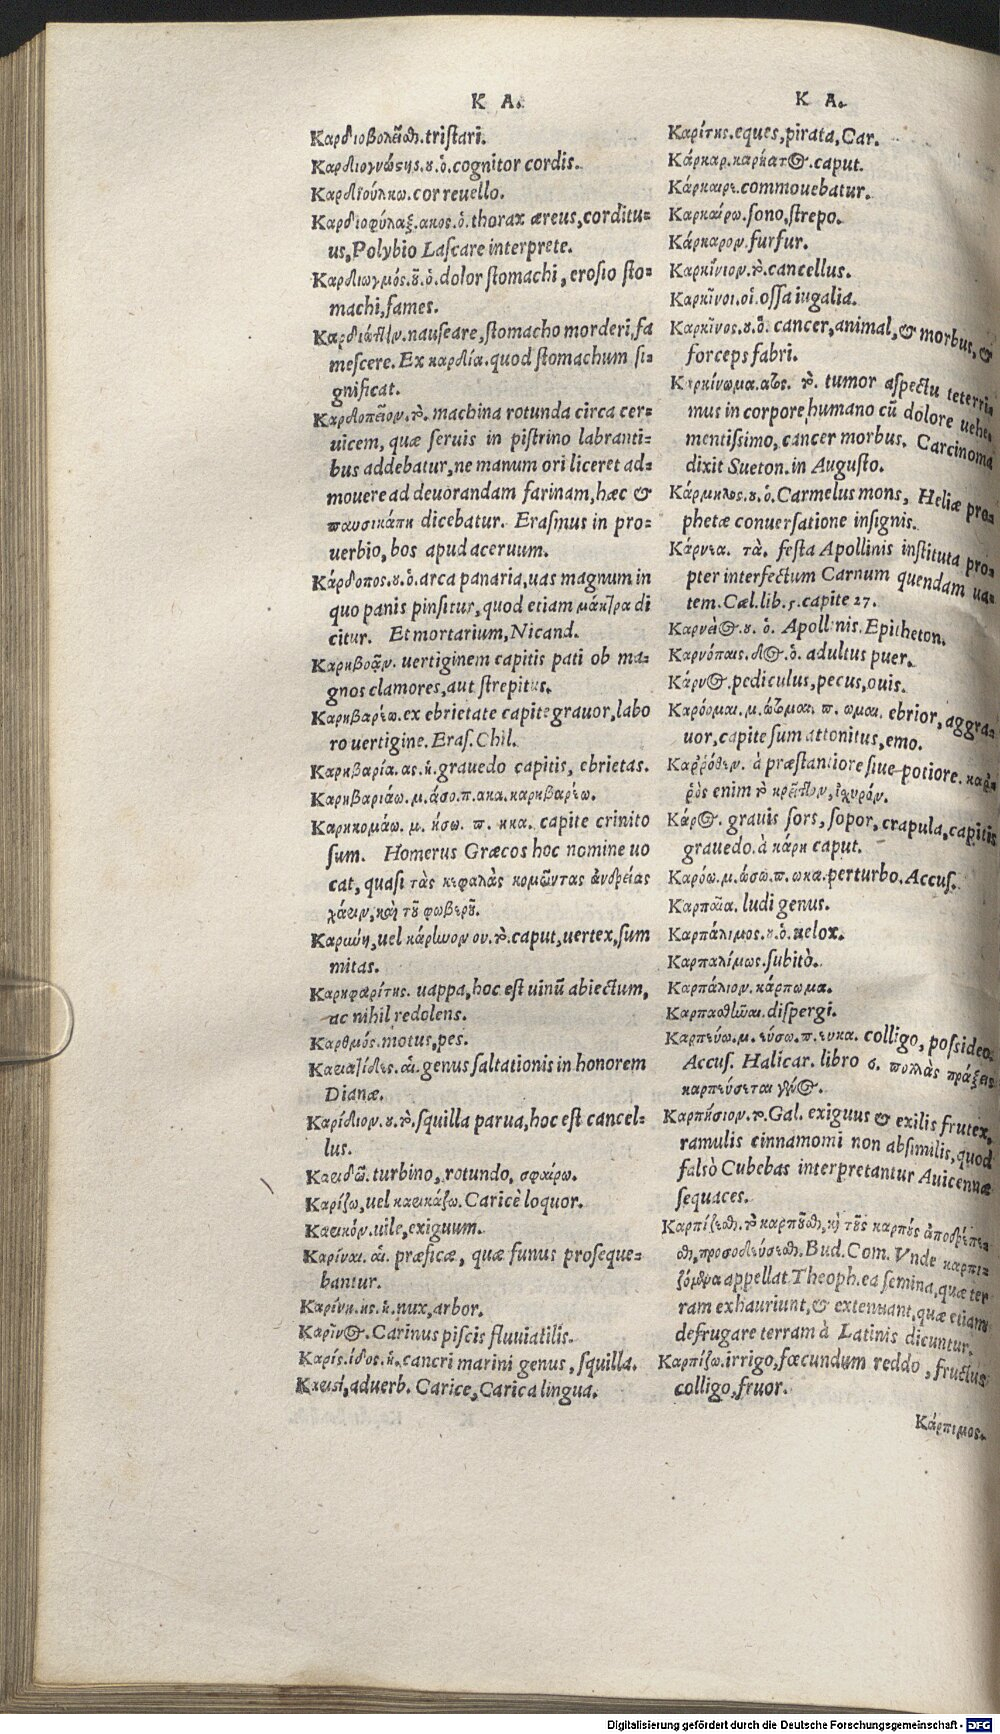 K A.
Καρδιοβολεῖσθαι. tristari.
Καρδιογνώστης. ου. ὁ. cognitor cordis.
Καρδιουλκῶ. cor reuello.
Καρδιοφύλαξ. ακος. ὁ. thorax æreus, corditu=
us, Polybio Lascare interprete.
Καρδιωγμός. οῦ. ὁ. dolor stomachi, erosio sto=
machi, fames.
Καρδιώττειν. nauseare, stomacho morderi, fa
mescere. Ex καρδία. quod stomachum si=
gnificat.
Καρδοπεῖον. τὸ. machina rotunda circa cer=
uicem, quæ seruis in pistrino labranti=
bus addebatur, ne manum ori liceret ad=
mouere ad deuorandam farinam, hæc &
παυσικάπη dicebatur. Erasmus in pro=
uerbio, bos apud aceruum.
Κάρδοπος. ου. ὁ. arca panaria, uas magnum in
quo panis pinsitur, quod etiam μάκτρα di
citur. Et mortarium, Nicand.
Καρηβοᾷν. uertiginem capitis pati ob ma=
gnos clamores, aut strepitus.
Καρηβαρέω. ex ebrietate capite grauor, labo
ro uertigine. Eras. Chil.
Καρηβαρία. ας. ἡ. grauedo capitis, ebrietas.
Καρηβαριάω. μ. άσο. π. ακα. καρηβαρέω.
Καρηκομάω. μ. ήσω. π. ηκα. capite crinito
sum. Homerus Græcos hoc nomine uo
cat, quasi τὰς κεφαλὰς κομῶντας ἀνδρείας
χάριν, καὶ τοῦ φοβεροῦ.
Καρήνη, uel κάρηνον ου. τὸ. caput, uertex, sum
mitas.
Καρηφαρίτης. uappa, hoc est uinū abiectum,
ac nihil redolens.
Καρθμός. motus, pes.
Καρυατίδες. αἱ. genus saltationis in honorem
Dianæ.
Καρίδιον. ου. τὸ. squilla parua, hoc est cancel=
lus.
Καριδῶ. turbino, rotundo, σφαίρω.
Καρίζω, uel καρικάζω. Caricè loquor.
Καρικόν. uile, exiguum.
Καρίναι. αἱ. præficæ, quæ funus proseque=
bantur.
Καρίνη. ης. ἡ. nux, arbor.
Καρῖνος. Carinus piscis fluuiatilis.
Καρίς. ίδος. ἡ. cancri marini genus, squilla.
Καρισί, aduerb. Carice, Carica lingua.
K A.
Καρίτης. eques, pirata, Car.
Κάρκαρ. καρήατος. caput.
Κάρκαιρε. commouebatur.
Καρκαίρω. sono, strepo.
Κάρκαρον. furfur.
Καρκίνιον. τὸ. cancellus.
Καρκῖνοι. οἱ. ossa iugalia.
Καρκῖνος. ου. ὁ. cancer, animal, & morbus, &
forceps fabri.
Καρκίνωμα. ατος. τὸ. tumor aspectu teterri
mus in corpore humano cū dolore uehe
mentissimo, cancer morbus. Carcinoma
dixit Sueton. in Augusto.
Κάρμηλος. ου. ὁ. Carmelus mons, Heliæ pro=
phetæ conuersatione insignis.
Κάρνεια. τὰ. festa Apollinis instituta pro=
pter interfectum Carnum quendam ua=
tem. Cæl. lib. 5. capite 27.
Καρνεῖος. ου. ὁ. Apollinis. Epitheton.
Καρνόπαις. δος. ὁ. adultus puer.
Κάρνος. pediculus, pecus, ouis.
Καρόομαι. μ. ώσομαι. π. ωμαι. ebrior, aggra=
uor, capite sum attonitus, emo.
Καῤῥόθεν. à præstantiore siue potiore. καῤ
ῥός enim τὸ κρεῖττον, ἰσχυρόν.
Κάρος. grauis sors, sopor, crapula, capitis
grauedo. à κάρη caput.
Καρόω. μ. ώσω. π. ωκα. perturbo. Accus.
Καρπαῖα. ludi genus.
Καρπάλιμος. ου. ὁ. uelox.
Καρπαλίμως. subitò.
Καρπάλιον. κάρπωμα.
Καρπασθῶναι. dispergi.
Καρπεύω. μ. εύσω. π. ευκα. colligo, possideo.
Accus. Halicar. libro 6. πολλὰς πράξεις
καρπεύσεται γένος.
Καρπήσιον. τὸ. Gal. exiguus & exilis frutex,
ramulis cinnamomi non absimilis, quod
falsò Cubebas interpretantur Auicennæ
sequaces.
Καρπίζεσθαι. τὸ καρποῦσθαι, καὶ τοὺς καρποὺς ἀποδρέπε=
σθαι, προσοδεύεσθαι. Bud. Com. Vnde καρπι=
ζόμενα appellat Theoph. ea semina, quæ ter
ram exhauriunt, & extenuant, quæ etiam
defrugare terram à Latinis dicuntur.
Καρπίζω. irrigo, fœcundum reddo, fructus
colligo, fruor.
Κάρπιμος.
Digitalisierung gefördert durch die Deutsche Forschungsgemeinschaft - DFG